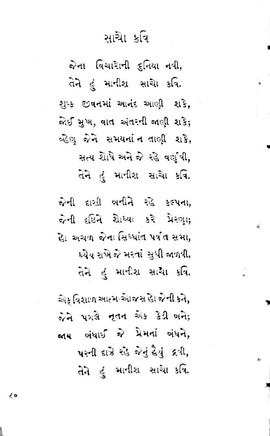 સાચો કવિ
જેના વિચારોની દુનિયા નવી,
તેને હું માનીશ સાચો કવિ.
શુષ્ક જીવનમાં આનંદ આણી શકે,
જોઈ મુખ, વાત અંતરની જાણી શકે;
વ્હેણુ જેને સમયનાં ન તાણી શકે,
સત્ય શોધે અને જે રહે વર્ણવી,
તેને હું માનીશ સાચો કવિ.
જેની દાસી બનીને રહે કલ્પના,
જેની દૃષ્ટિને શોધ્યા કરે પ્રેરણા;
હો અચળ જેના સિધ્ધાંત પર્વત સમા,
ધ્યેય રાખે જે મરતાં સુધી જાળવી,
તેને હું માનીશ સાચો કવિ.
એક વિશાળ આત્મ ઓજસ હો જેની કને,
જેને પગલે નૂતન એક કેડી બને;
જાય બંધાઈ જે પ્રેમનાં બંધને,
પરની દાઝે રહે જેનું હૈયું દ્રવી,
તેને હું માનીશ સાચો કવિ.
૮૦